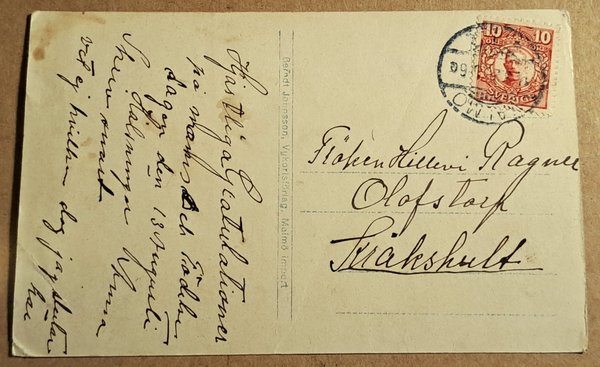 Hjärtliga Gratulationer
på namns och Födelse
dagen den 13 Augusti
Hälsningar
snart
vet ej hvilken dag jag slutar
här
Benedt Johnsson, Vykortsförlag, Malmö
10 10
SVERIGE
Fröken Hillevi Ragner
Olofstorp
Kråkshult